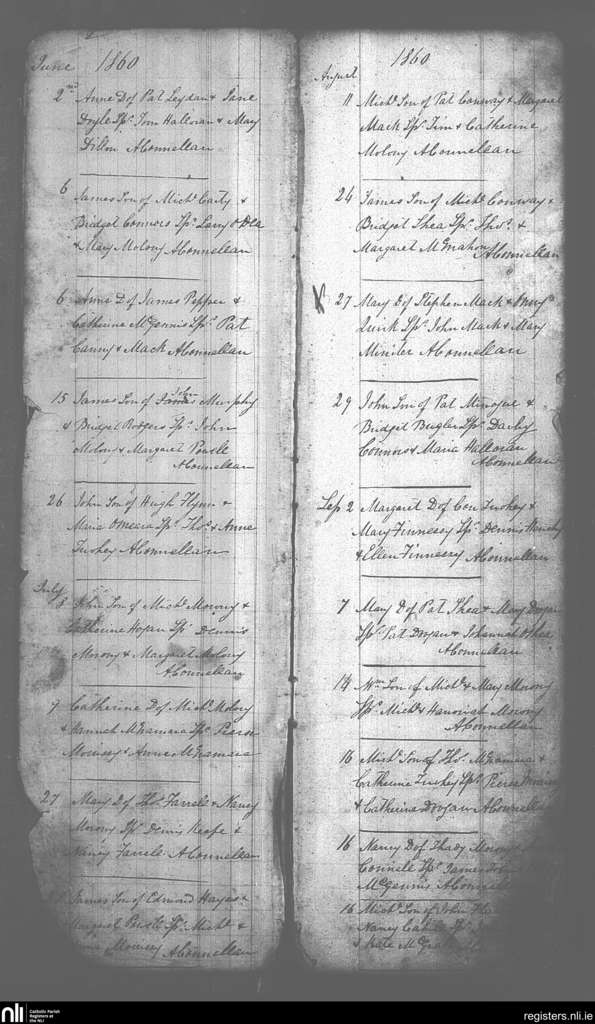 June 1860
2nd Anne D of Pat Leydan & Jane
Doyle Sps Tom Halloran & Mary
Dillon A Connellan
6 James Son of Michl Carty &
Bridget Connors Sps Larry O Dea
& Mary Molony A Connellan
6 Anne D of James Pepper &
Catherine McGennis Sps Pat
Canny & Mack A Connellan
15 James Son of Murphy
& Bridget Rodgers Sps John
Molony & Margaret Powell
A Connellan
26 John Son of Hugh Flynn &
Maria O Meara Sps Thos & Anne
Tuohey A Connellan
July
John Son of Michl Morony &
Catherine Hogan Sps Dennis
Morony & Margaret Molony
A Connellan
9 Catherine D of Michl Molony
& Hannah McNamara Sps Pierse
Morissey & Anne McNamara
27 Mary D of Thos Farrell & Nancy
Morony Sps Dennis Keefe &
Nancy Farrell A Connellan
James Son of Edmond Hayes &
Margaret Sps Michl &
A Connellan
August 1860
11 Michl Son of Pat Conway & Margaret
Mack Sps Tim & Catherine
Molony A Connellan
24 James Son of Michl Conway &
Bridget Shea Sps Thos &
Margaret McMahon A Connellan
27 Mary D of Stephen Mack &
Quirk Sps John Mack & Mary
Miniter A Connellan
29 John Son of Pat Minogue &
Bridget Bugler Sps Darby
Connors & Maria Halloran
A Connellan
Sep 2 Margaret D of Con Tuohey &
Mary Finnessy Sps Dennis
& Ellen Finnessy A Connellan
7 Mary D of Pat Shea & Mary Dogan
Sps Pat Dogan & Johannah O Shea
A Connellan
14 Wm Son of Michl & Mary Morony
Sps Michl & Hanorah Morony
A Connellan
16 Michl Son of Thos McNamara &
Catherine Tuohey Sps Pierse
& Catherine Dogan A Connellan
16 Nancy D of Thady Morony
Connell Sps James
McGennis A Connell
16 Michl Son of John
Nancy Sps
& Kate
nli
Catholic Parish
Registers at
the NLI
registers.nli.ie